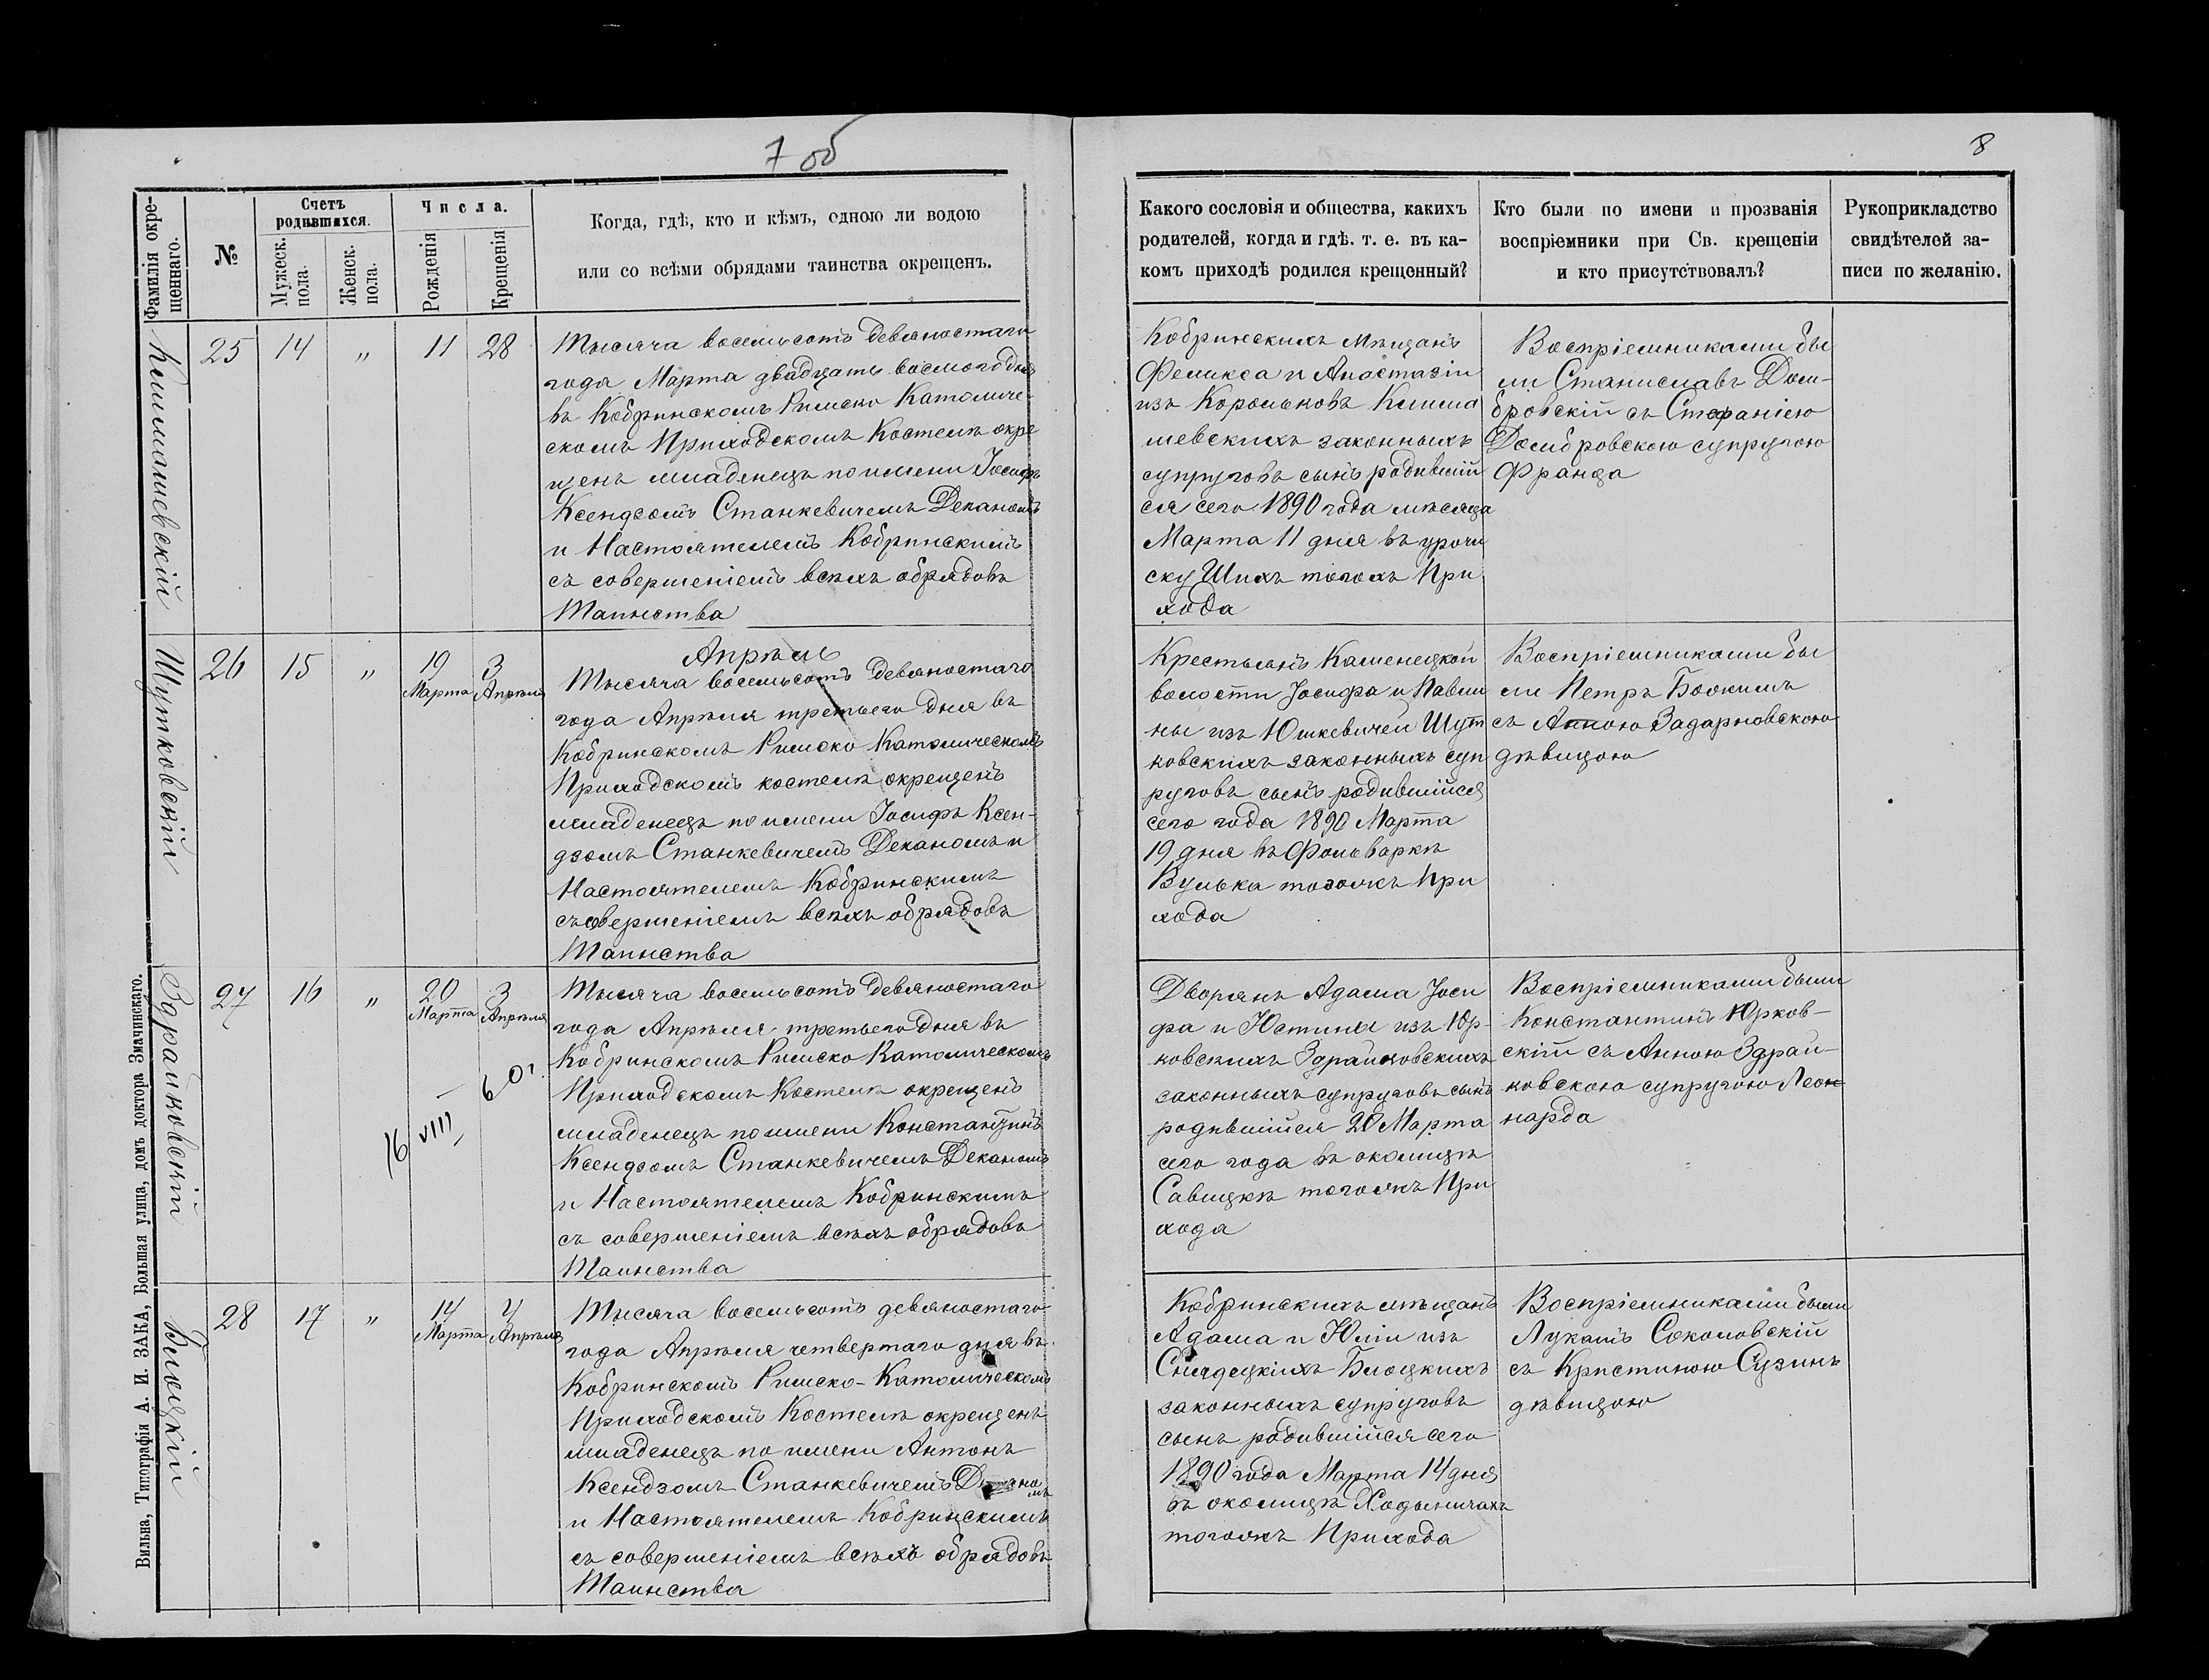 7 об
8
Фамилія окре-
щеннаго.
№
Счетъ
родившихся.
Мужеск.
пола.
Женск.
пола.
Числа.
Рожденія
Крещенія
Когда, гдѣ, кто и кѣмъ, одною ли водою
или со всѣми обрядами таинства окрещенъ.
Какого сословія и общества, какихъ
родителей, когда и гдѣ. т. е. въ ка-
комъ приходѣ родился крещенный?
Кто были по имени и прозванія
воспріемники при Св. крещеніи
и кто присутствовалъ?
Рукоприкладство
свидѣтелей за-
писи по желанію.
Климашевскій
25
14
"
11
28
Тысяча восемьсотъ девяностаго
года Марта двадцать восмого дня
въ Кобринскомъ Римско Католиче-
скомъ Приходскомъ Костелѣ окре
щенъ младенецъ по имени Іосифъ
Ксендзомъ Станкевичемъ Деканомъ
и Настоятелемъ Кобринскимъ
съ совершеніемъ всѣхъ обрядовъ
Таинства
Кобринскихъ мѣщанъ
Феликса и Анастазіи
изъ Корольковъ Клима
шевскихъ законныхъ
супруговъ сынъ родившій
ся сего 1890 года мѣсяца
Марта 11 дня въ урочи
ску Шихъ тогожъ При
хода
Воспріемниками бы
ли Станиславъ Дом-
бровскій съ Стефаніею
Домбровскою супругою
Франца
Шутковскій
26
15
"
19
Марта
3
Апрѣля
Апрѣль
Тысяча восемьсотъ девяностаго
года Апрѣля третьего дня въ
Кобринскомъ Римско Католическомъ
Приходскомъ костелѣ окрещенъ
младенецъ по имени Іосифъ Ксен-
дзомъ Станкевичемъ Деканомъ и
Настоятелемъ Кобринскимъ
съ совершеніемъ всѣхъ обрядовъ
Таинства
Крестьянъ Каменецкой
волости Іосифа и Павли
ны изъ Юшкевичей Шут
ковскихъ законныхъ суп
руговъ сынъ родившійся
сего года 1890 Марта
19 дня въ Фольваркѣ
Вулька тогожъ При
хода
Воспріемниками бы
ли Петръ
съ Анною Задарновскою
дѣвицою
Здрайковскій
27
16
"
20
Марта
3
Апрѣля
16 VIII
Тысяча восемьсотъ девяностаго
года Апрѣля третьего дня въ
Кобринскомъ Римско Католическомъ
Приходскомъ Костелѣ окрещенъ
младенецъ по имени Константинъ
Ксендзомъ Станкевичемъ Деканомъ
и Настоятелемъ Кобринскимъ
съ совершеніемъ всѣхъ обрядовъ
Таинства
Дворянъ Адама Іоси
фа и Юстины изъ Юр-
ковскихъ Здрайковскихъ
законныхъ супруговъ сынъ
родившійся 20 Марта
сего года въ околицѣ
Савицкѣ тогожъ При
хода
Воспріемниками были
Константинъ Юрков-
скій съ Анною Здрай-
ковскою супругою Леон
нарда
Билецкій
28
17
"
14
Марта
4
Апрѣля
Тысяча восемьсотъ девяностаго
года Апрѣля четвертаго дня въ
Кобринскомъ Римско-Католическомъ
Приходскомъ Костелѣ окрещенъ
младенецъ по имени Антонъ
Ксендзомъ Станкевичемъ Деканомъ
и Настоятелемъ Кобринскимъ
съ совершеніемъ всѣхъ обрядовъ
Таинства
Кобринскихъ мѣщанъ
Адама и Юліи изъ
Снядецкихъ
законныхъ супруговъ
сынъ родившійся сего
1890 года Марта 14 дня
въ околицѣ Ходыничахъ
тогожъ Прихода
Воспріемниками были
Лукашъ Соколовскій
съ Кристиною Сузинъ
дѣвицою
Вильна, Типографія А. И. ЗАКА, Большая улица, домъ доктора Значинскаго.